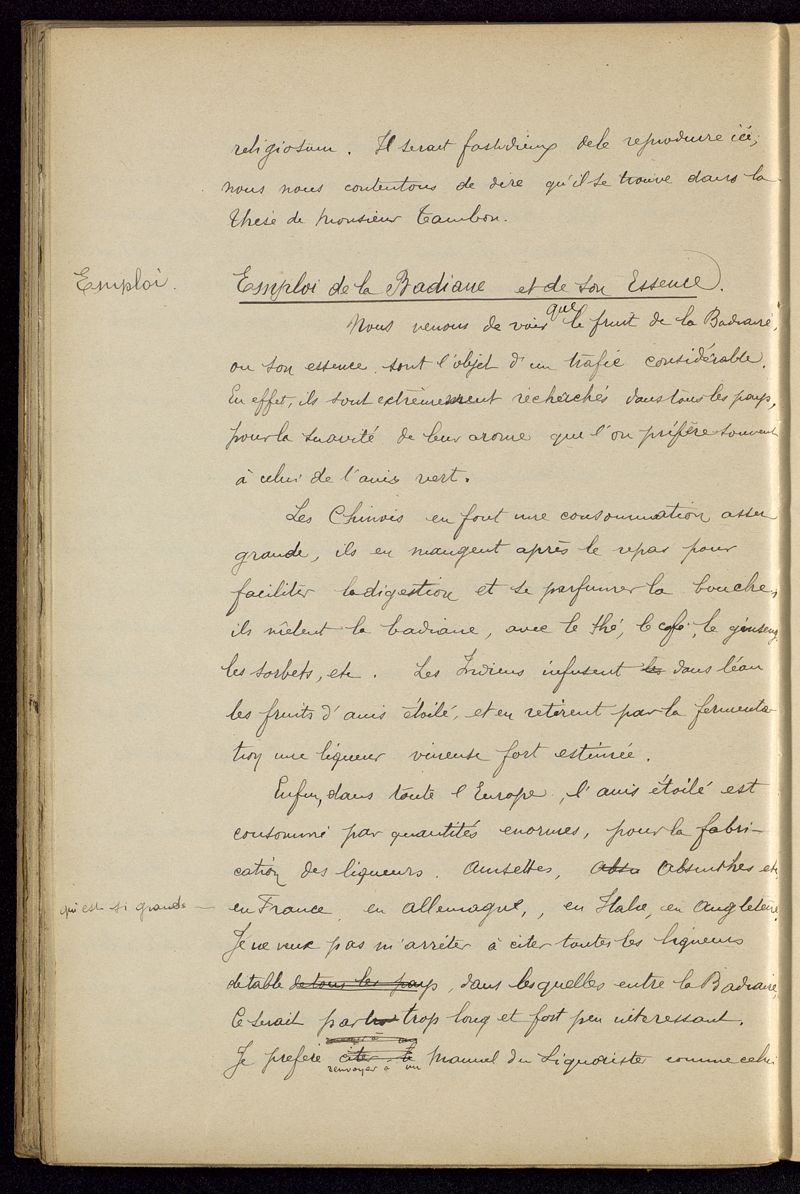 religiosum. Il serait fastidieux de le reproduire ici;
nous nous contentons de dire qu'il se trouve dans la
thèse de Monsieur Tambon.
Emploi.
Emploi de la Badiane et de son Essence.
Nous venons de voir que le fruit de la Badiane,
ou son essence sont l'objet d'un trafic considérable.
En effet, ils sont extrêmement recherchés dans tous les pays,
pour la suavité de leur arome que l'on préfère souvent
à celui de l'anis vert.
Les Chinois en font une consommation assez
grande, ils en mangent après le repas pour
faciliter la digestion et se parfumer la bouche,
ils mêlent la badiane, avec le thé, le café, le ginseng,
les sorbets, etc. Les Indiens infusent les dans l'eau
les fruits d'anis étoilé, et en retirent par la fermenta-
tion une liqueur vineuse fort estimée.
Enfin, dans toute l'Europe, l'anis étoilé est
consommé par quantités enormes, pour la fabri-
cation des liqueurs. Anisettes, Absu Absinthes etc
qui est si grande —
en France, en Allemagne, , en Italie, en Angleterre,
Je ne veux pas m'arrêter à citer toutes les liqueurs
de table de tous les pays, dans lesquelles entre la Badiane,
Ce serait par trop long et fort peu interessant.
Je prefere citer le Manuel du Liquoriste comme celui
renvoyer à un